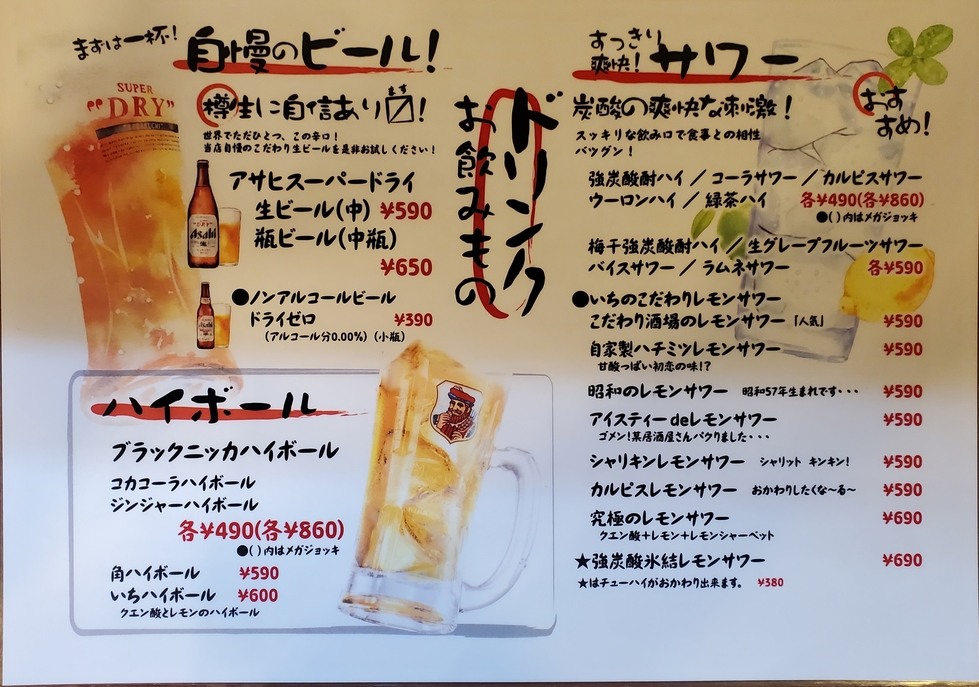 まずは一杯!
自慢のビール!
SUPER
"DRY"
樽生に自信あり〼!
ます
世界でただひとつ、この辛口!
当店自慢のこだわり生ビールを是非お試しください!
アサヒスーパードライ
生ビール(中) ¥590
瓶ビール(中瓶)
¥650
Asahi
●ノンアルコールビール
ドライゼロ ¥390
(アルコール分0.00%)(小瓶)
Asahi
ドリンク
お飲みもの
ハイボール
ブラックニッカハイボール
コカコーラハイボール
ジンジャーハイボール
各¥490(各¥860)
●( )内はメガジョッキ
角ハイボール ¥590
いちハイボール ¥600
クエン酸とレモンのハイボール
すっきり
爽快!
サワー
おすすめ!
炭酸の爽快な刺激!
スッキリな飲み口で食事との相性
バツグン!
強炭酸酎ハイ／コーラサワー／カルピスサワー
ウーロンハイ／緑茶ハイ 各¥490(各¥860)
●( )内はメガジョッキ
梅干強炭酸酎ハイ／生グレープフルーツサワー
バイスサワー／ラムネサワー 各¥590
●いちのこだわりレモンサワー
こだわり酒場のレモンサワー「人気」 ¥590
自家製ハチミツレモンサワー ¥590
甘酸っぱい初恋の味!?
昭和のレモンサワー 昭和57年生まれです・・・ ¥590
アイスティーdeレモンサワー ¥590
ゴメン!某居酒屋さんパクりました・・・
シャリキンレモンサワー シャリット キンキン! ¥590
カルピスレモンサワー おかわりしたくな〜る〜 ¥590
究極のレモンサワー ¥690
クエン酸+レモン+レモンシャーベット
★強炭酸氷結レモンサワー ¥690
★はチューハイがおかわり出来ます。 ¥380